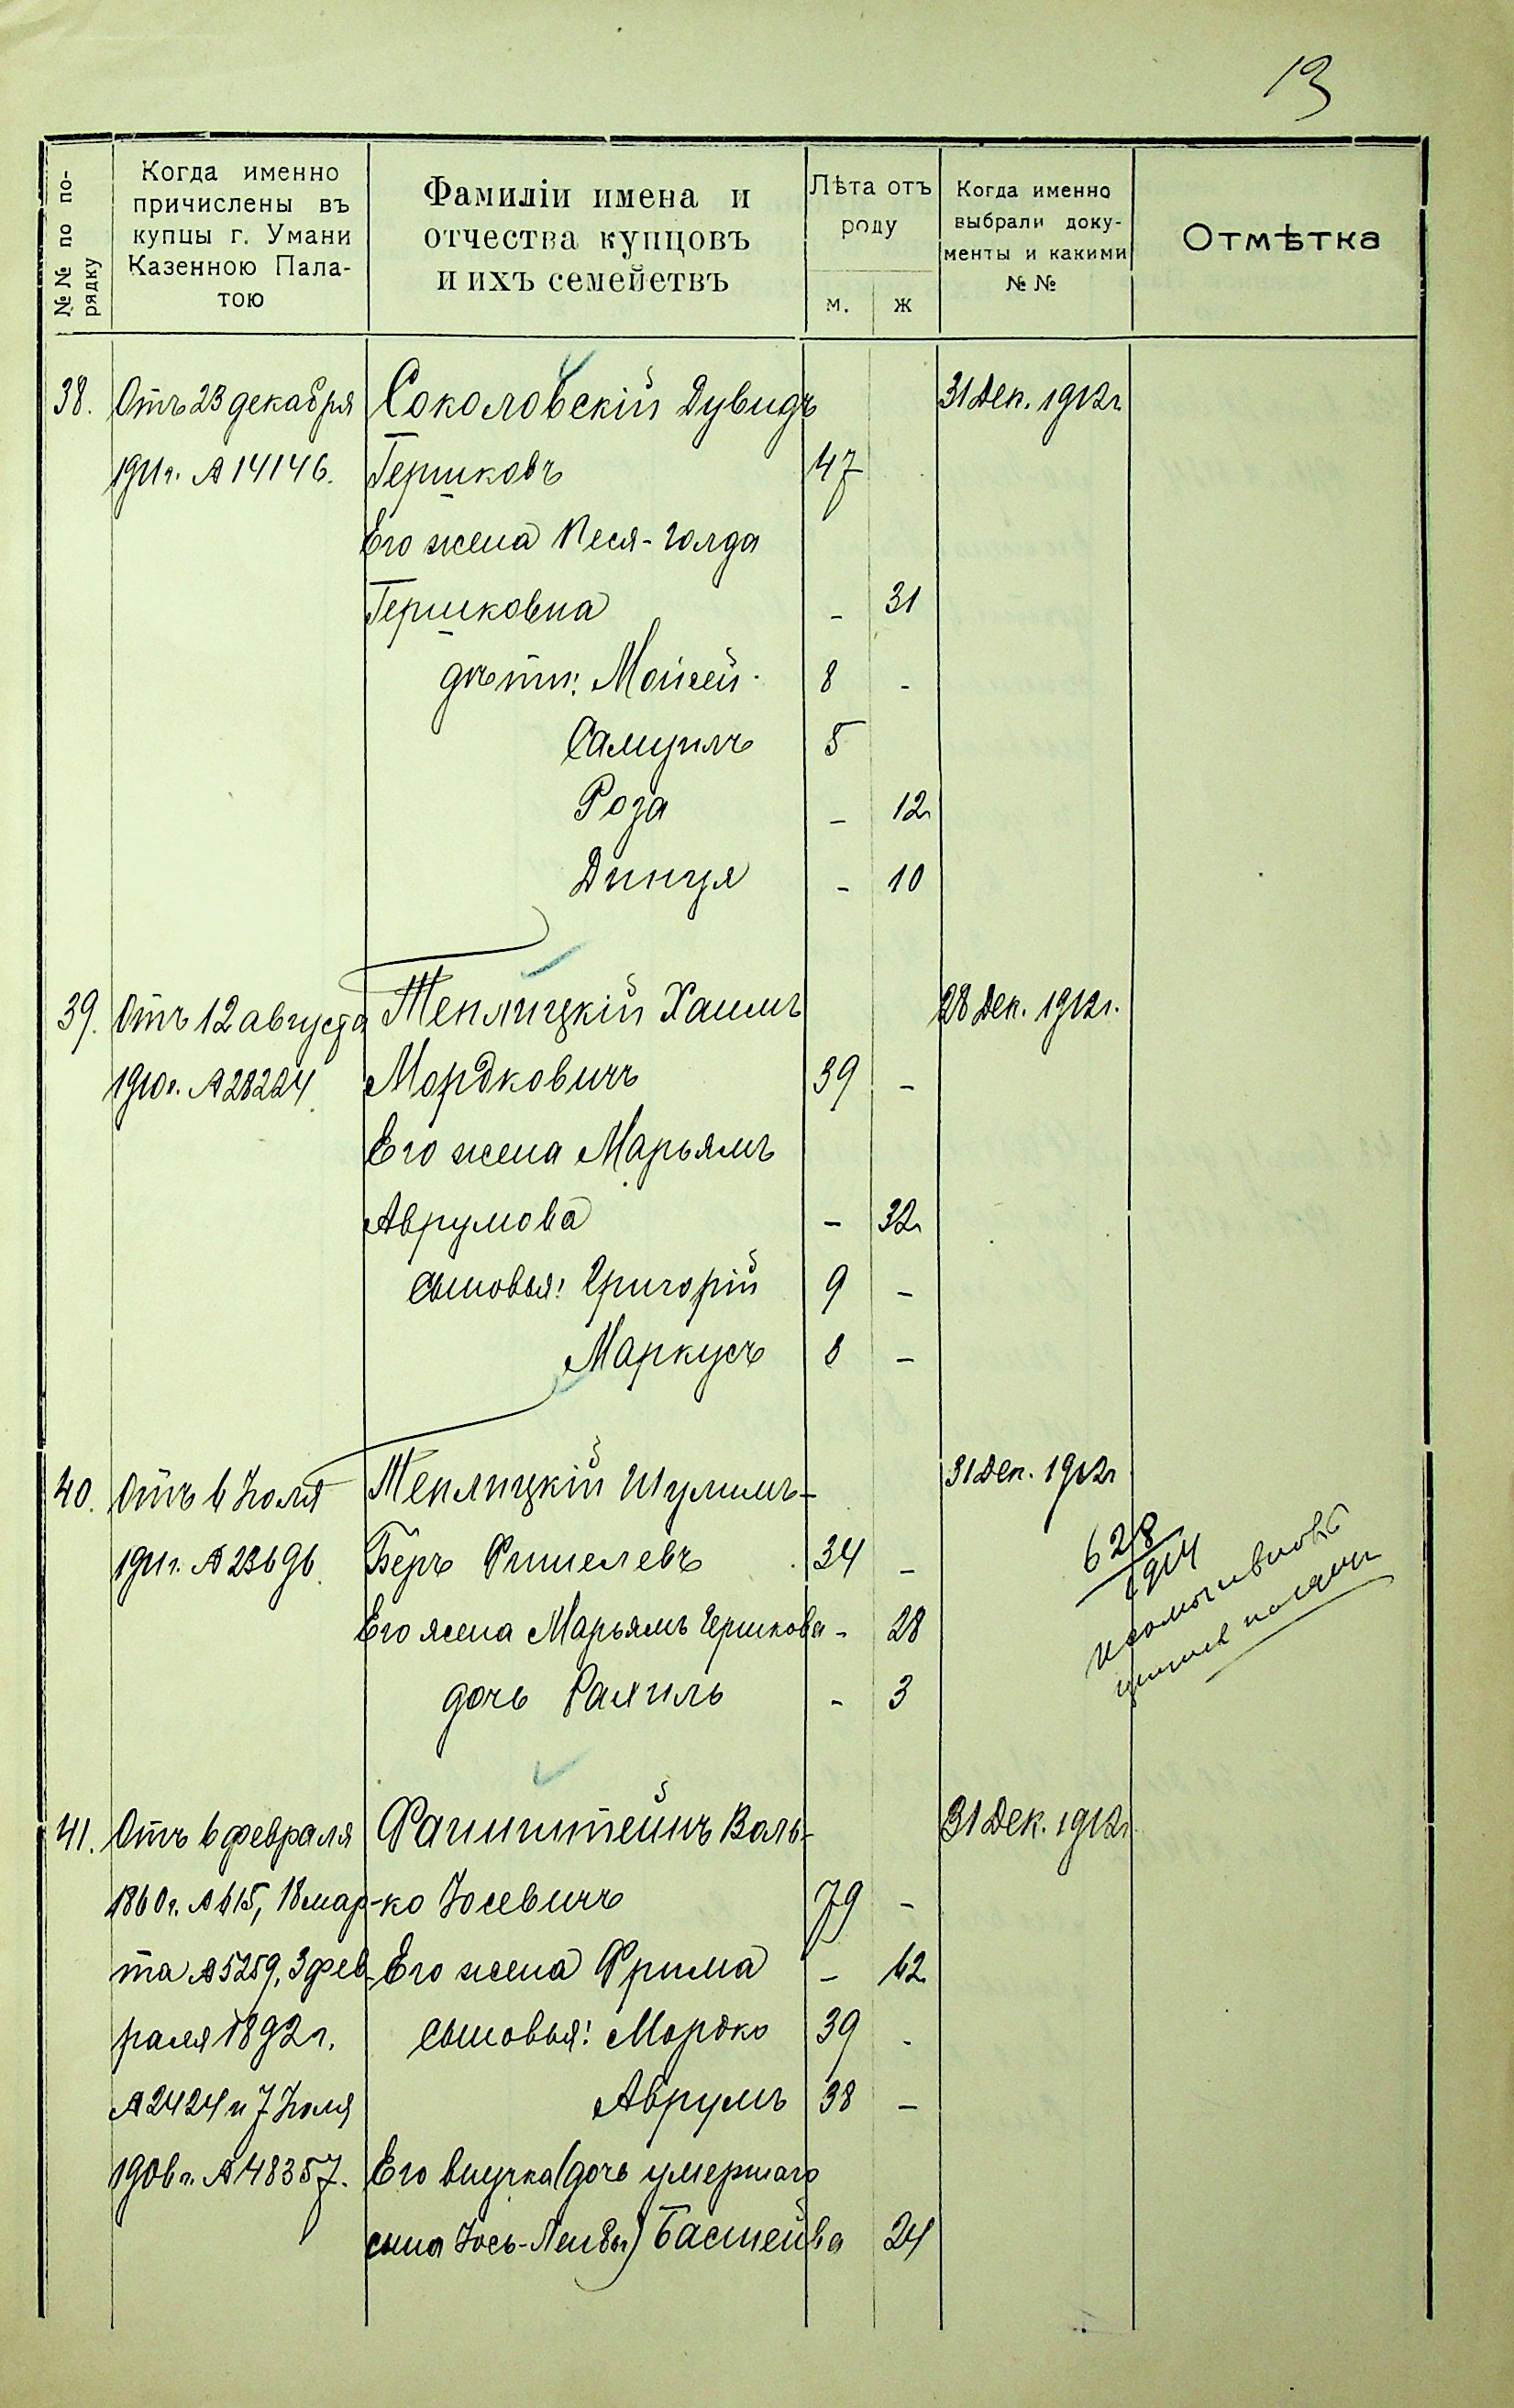 13
№№ по по-
рядку
Когда именно
причислены въ
купцы г. Умани
Казенною Пала-
тою
Фамиліи имена и
отчества купцовъ
и ихъ семействъ
Лѣта отъ
роду
м. ж
Когда именно
выбрали доку-
менты и какими
№ №
Отмѣтка
38. Отъ 23 декабря Соколовскій Дувидъ 31 Дек. 1912 г.
1911 г. № 14146. Гершковъ 47
Его жена Песя-Голда
Гершковна - 31
дѣти: Мойсей 8 -
Самуилъ 5
Роза - 12
Динця - 10
39. Отъ 12 августа Теплицкій Хаимъ 28 Дек. 1912 г.
1910 г. № 28224 Мордковичъ 39 -
Его жена Марьямъ
Аврумова - 32
сыновья: Григорій 9 -
Маркусъ 8 -
40. Отъ 6 Іюля Теплицкій Шулимъ- 31 Дек. 1912 г.
1911 г. № 23696. Беръ Фишелевъ 34 -
Его жена Марьямъ Гершкова - 28
дочь Рахиль - 3
628
1914
41. Отъ 6 февраля Файнштейнъ Воль- 31 Дек. 1912 г.
1860 г. № 615, 18 мар- ко Іосевичъ 79 -
та № 5259, 3 фев- Его жена Фрима - 62
раля 1892 г. сыновья: Мордко 39 -
№ 2424 и 7 Іюля Аврумъ 38 -
1906 г. № 48357. Его внучка (дочь умершаго
сына Іось-Лейбы) Басшейва 24